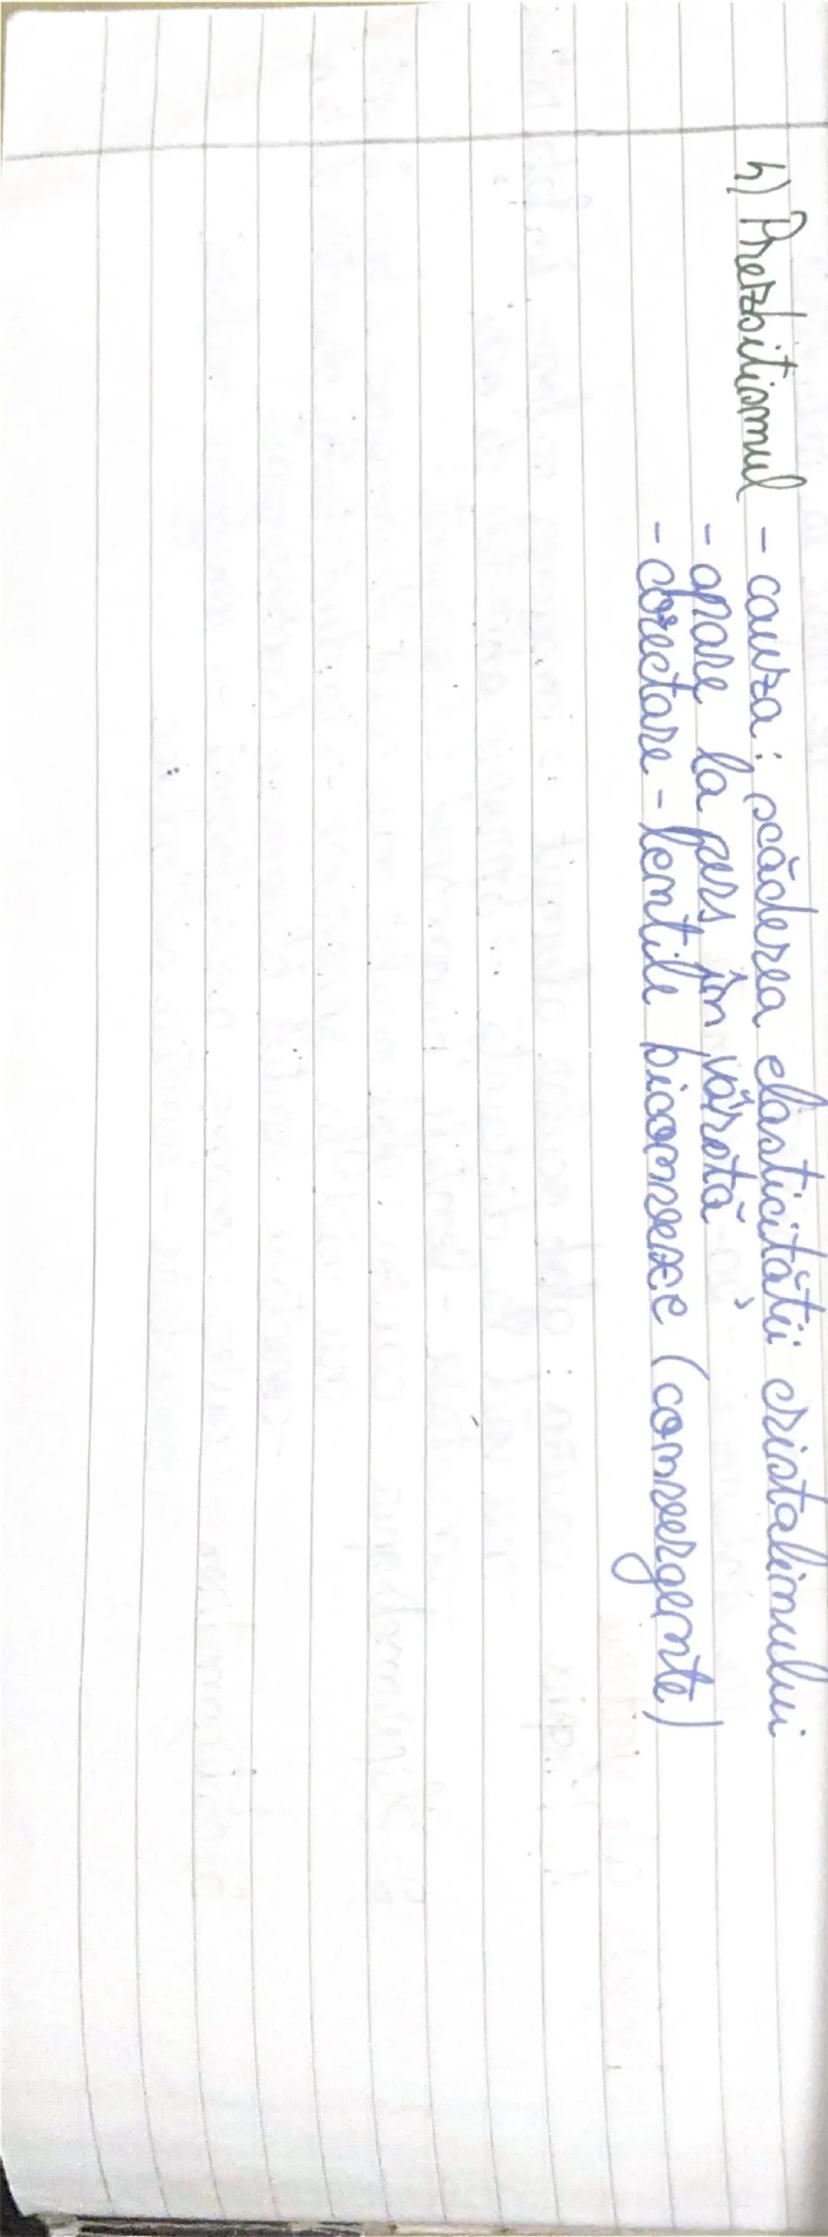 h) Prezbitismul - cauza: scăderea elasticității cristalinului
- apare la pers în vârstă
- corectare - lentile biconvexe (convergente)